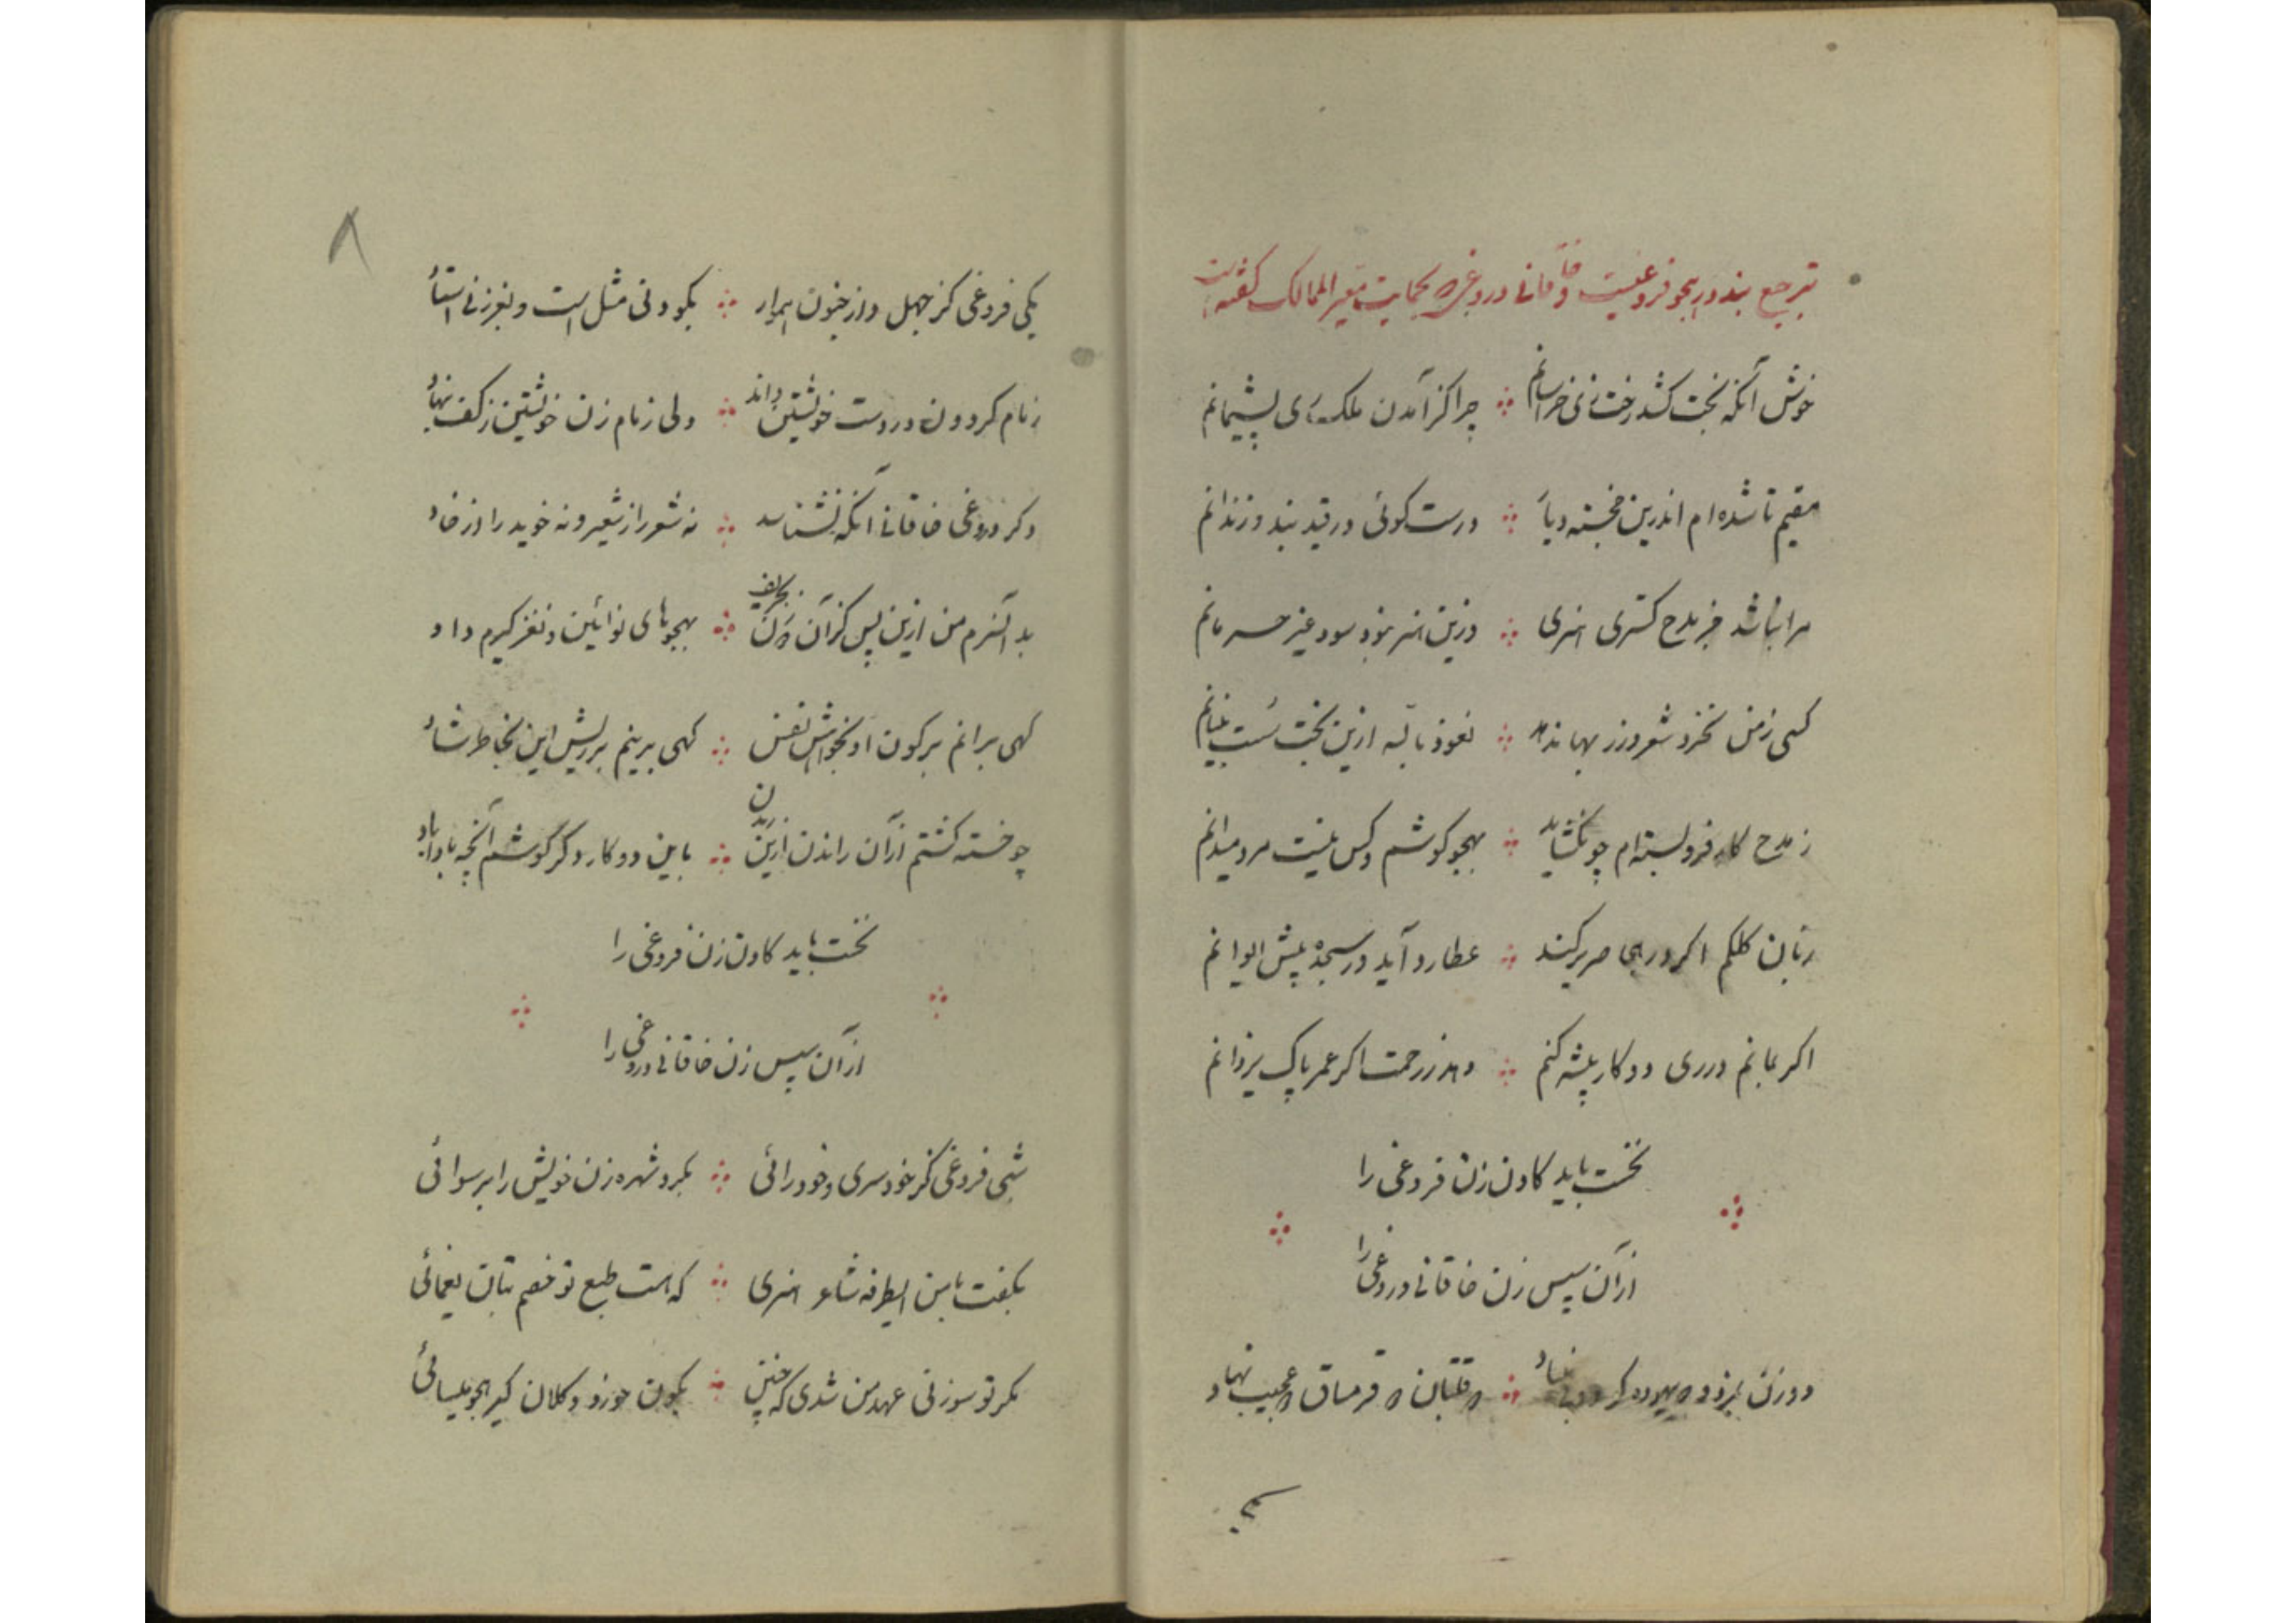 ترجیع بند در هجو فروغیست و خاقانی دروغی که بحمایت معیر الممالک گفته است
خوش آنکه بخت کشد رخت زی خراسانم چرا کز آمدن ملک ری پشیمانم
مقیم تا شده‌ام اندرین خجسته دیار درست گوئی در قید بند و زندانم
مرا نباشد جز مدح گستری هنری وزین هنر نبود سود غیر حرمانم
کسی ز من نخرد شعر و زر بها ندهد نعوذ بالله ازین بخت سست بنیانم
ز مدح کار فرو بسته‌ام چو نگشاید بهجو کوشم و کس نیست مرد میدانم
زبان کلکم اگر در هجا صریر کند عطارد آید در سجده پیش ایوانم
اگر بمانم در ری دو کار پیشه کنم دهد ز رحمت اگر عمر پاک یزدانم
نخست باید گادن زن فروغی را
از آن سپس زن خاقانی دروغی را
دو زن بمزد که بنیاد که قلتبان که قرمساق که عجیب نهاد
۸
یکی فروغی کز جهل و از جنون هموار بکودنی مثل است و بغر زنی استاد
زمام گردون در دست خویشتن داند ولی زمام زن خویشتن ز کف بنهاد
دگر دروغی خاقانی آنکه نشناسد نه شعر را ز شعیر و نه خوید را از خاد
بد آنسرم من ازین پس کزان بحریف بهجوهای نوآئین و نغز گیرم داد
گهی برانم بر کون او بخواهش نفس گهی برینم بر ریش این بخاطر شاد
چو خسته گشتم از آن راندن ازین ریدن باین دو کار دگر کوشم آنچه بادا باد
نخست باید گادن زن فروغی را
از آن سپس زن خاقانی دروغی را
شبی فروغی کز خودسری و خودرائی بکرد شهره زن خویش را برسوائی
بگفت با من ایطرفه شاعر هنری که هست طبع تو خصم بتان یغمائی
مگر تو سوزنی عهد من شدی که چنین بکون خورد و کلان کیر هجو میسائی